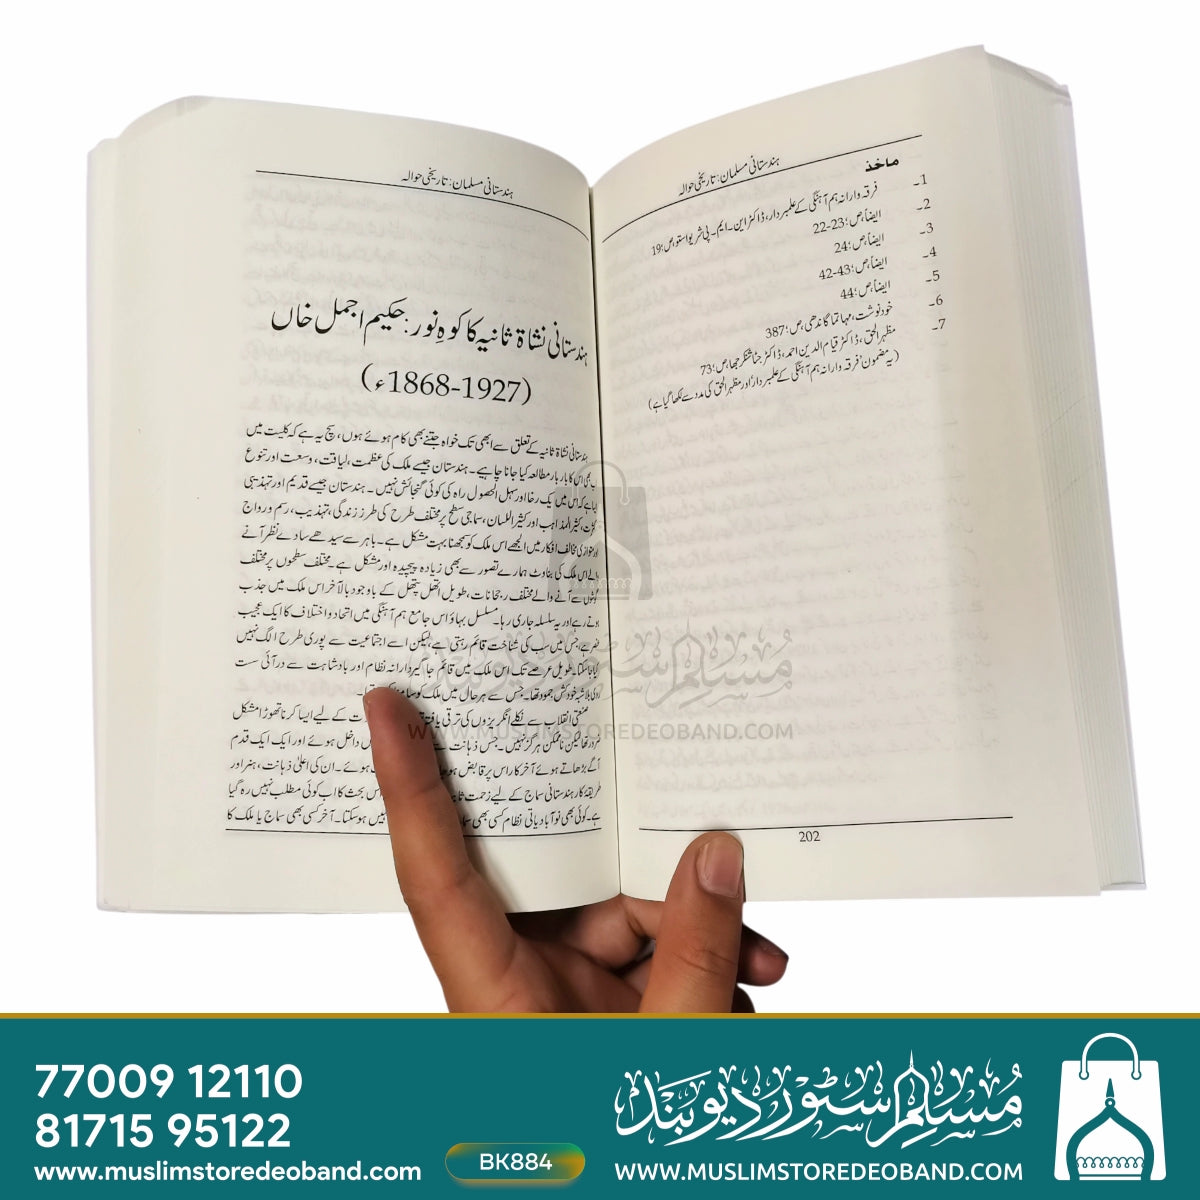 ہندستانی مسلمان: تاریخی حوالہ
ماخذ
1۔ فرقہ وارانہ ہم آہنگی کے علمبردار، ڈاکٹر این۔ ایم۔ پی شریواستو، ص؛19
2۔ ایضاً، ص؛ 23-22
3۔ ایضاً، ص؛ 24
4۔ ایضاً، ص؛ 43-42
5۔ ایضاً، ص؛ 44
6۔ خود نوشت، مہاتما گاندھی، ص؛ 387
7۔ مظہر الحق، ڈاکٹر قیام الدین احمد، ڈاکٹر جٹا شنکر جھا، ص؛ 73
(یہ مضمون ’فرقہ وارانہ ہم آہنگی کے علمبردار‘ اور مظہر الحق کی مدد سے لکھا گیا ہے)
202
ہندستانی مسلمان: تاریخی حوالہ
ہندستانی نشاۃ ثانیہ کا کوہِ نور: حکیم اجمل خاں
(1868-1927ء)
ہندستانی نشاۃ ثانیہ کے تعلق سے ابھی تک خواہ جتنے بھی کام ہوئے ہوں، سچ یہ ہے کہ کلیت میں
بھی اس کا بار بار مطالعہ کیا جانا چاہیے۔ ہندستان جیسے ملک کی عظمت، لیاقت، وسعت اور تنوع
ایسا ہے کہ اس میں یک رخا اور سہل الحصول راہ کی کوئی گنجائش نہیں۔ ہندستان جیسے قدیم اور تہذیبی
کثیر المذاہب اور کثیر اللسان، سماجی سطح پر مختلف طرح کی طرز زندگی، تہذیب، رسم و رواج
اور متوازی مخالف افکار میں الجھے اس ملک کو سمجھنا بہت مشکل ہے۔ باہر سے سیدھے سادے نظر آنے
والے اس ملک کی بناوٹ ہمارے تصور سے بھی زیادہ پیچیدہ اور مشکل ہے۔ مختلف سطحوں پر مختلف
گوشوں سے آنے والے مختلف رجحانات، طویل اتھل پتھل کے باوجود بالآخر اس ملک میں جذب
ہوتے رہے اور یہ سلسلہ جاری رہا۔ مسلسل بہاؤ اس جامع ہم آہنگی میں اتحاد و اختلاف کا ایک عجیب
ہے، جس میں سب کی شناخت قائم رہتی ہے لیکن اسے اجتماعیت سے پوری طرح الگ نہیں
کیا جاسکتا۔ طویل عرصے تک اس ملک میں قائم جاگیردارانہ نظام اور بادشاہت سے در آئی سست
روی بلاشبہ خودکش جمود تھا۔ جس سے ہر حال میں ملک کو سامنا
صنعتی انقلاب سے نکلے انگریزوں کی ترقی یافتہ کے لیے ایسا کرنا تھوڑا مشکل
ضرور تھا لیکن ناممکن ہرگز نہیں۔ جس ذہانت کے داخل ہوئے اور ایک ایک قدم
آگے بڑھاتے ہوئے آخر کار اس پر قابض ہو ہوئے۔ ان کی اعلیٰ ذہانت، ہنر اور
طریقۂ کار ہندستانی سماج کے لیے زحمت اس بحث کا اب کوئی مطلب نہیں رہ گیا
ہے۔ کوئی بھی نوآبادیاتی نظام کسی بھی نہیں ہوسکتا۔ آخر کسی بھی سماج یا ملک کا
مسلم سٹور دیوبند
WWW.MUSLIMSTOREDEOBAND.COM
77009 12110
81715 95122
www.muslimstoredeoband.com
BK884
مسلم سٹور دیوبند
WWW.MUSLIMSTOREDEOBAND.COM